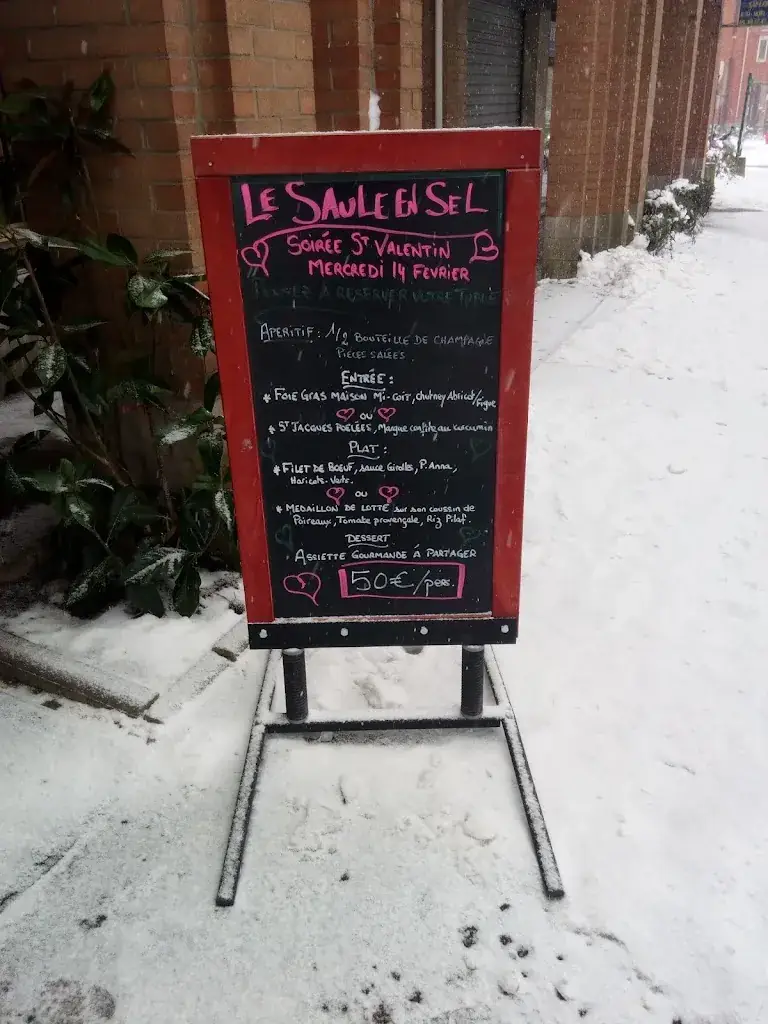 LE SAULE EN SEL
SOIRÉE ST VALENTIN
MERCREDI 14 FEVRIER
PENSEZ A RESERVER VOTRE TABLE
APERITIF : 1/2 BOUTEILLE DE CHAMPAGNE
PIECES SALÉES
ENTRÉE :
* FOIE GRAS MAISON MI-CUIT, chutney Abricot/Figue
OU
* ST JACQUES POELÉES, Mangue confite au curcumin
PLAT :
* FILET DE BOEUF, sauce Girolles, P. Anna,
Haricots-Verts.
OU
* MEDAILLON DE LOTTE sur son coussin de
Poireaux, Tomate provençale, Riz Pilaf.
DESSERT
ASSIETTE GOURMANDE À PARTAGER
50€/pers.